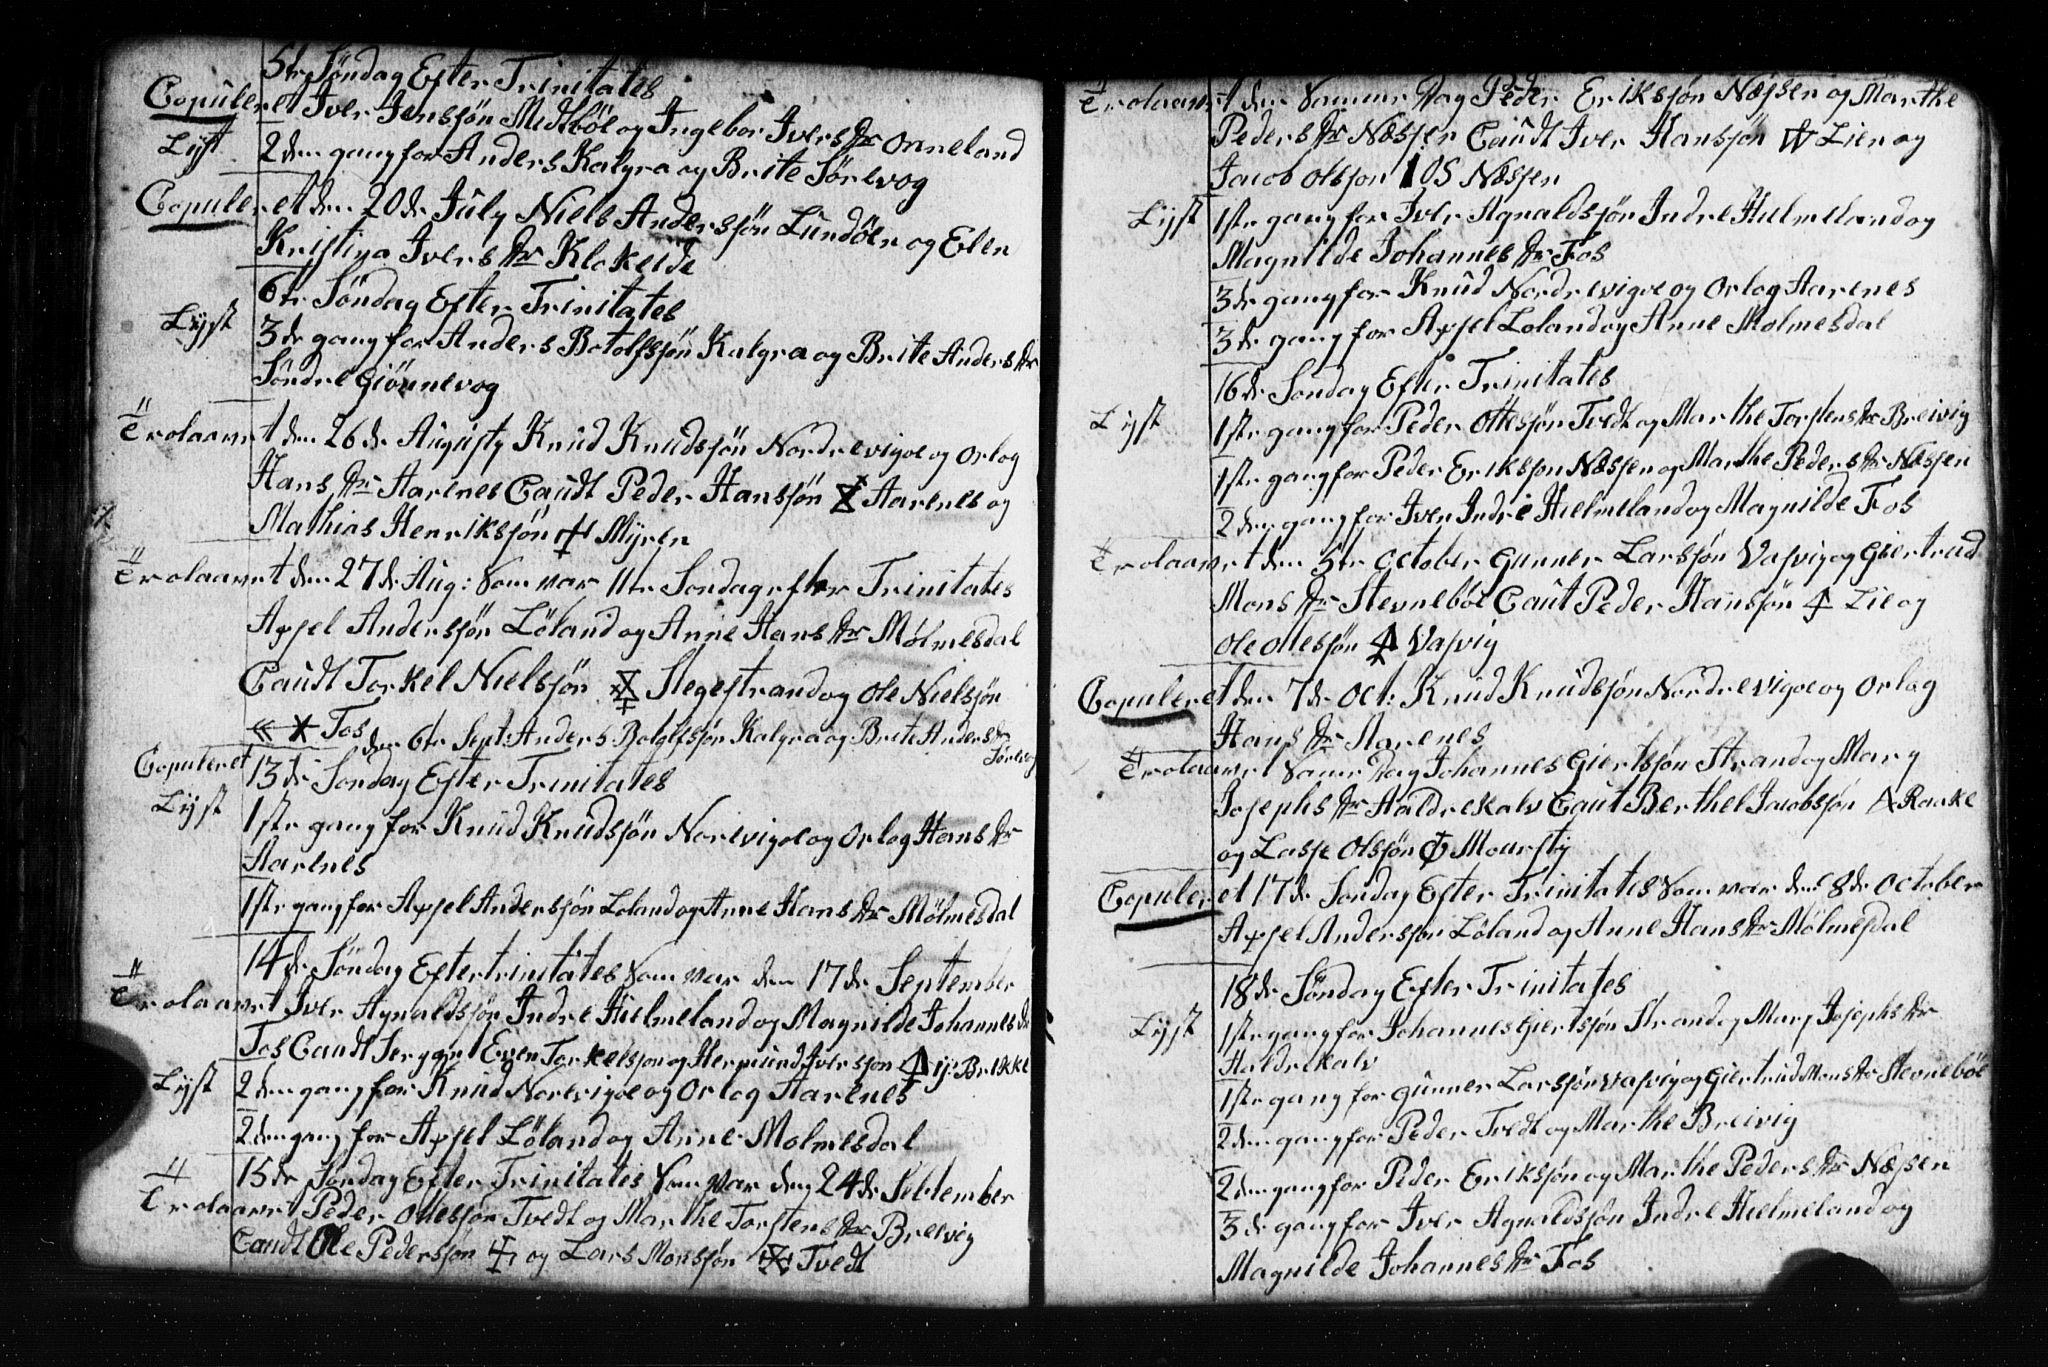 5te Søndag Efter Trinitates
Copuleret Iver Jenssøn Midtbøe og Ingebor Ivers dtr Onneland
Lyst 2den gang for Anders Kalgra og Brite Sørevog
Copuleret den 20de July Niels Anderssøn Lundøen og Elen
Kristina Ivers dtr Klokeide
6te Søndag Efter Trinitates
Lyst 3de gang for Anders Botolfsøn Kalgra og Brite Anders dtr
Søndre Giønnevog
Trolaavet den 26de Augusty Knud Knudsøn Nordrevigoe og Orlog
Hans dtr Aarenes Caudt Peder Hanssøn Aarenes og
Mathias Henriksøn Myren
Trolaavet den 27de Aug: Som var 11te Sondag efter Trinitates
Axsel Anderssøn Løland og Anne Hans dtr Mølmesdal
Caudt Torkel Nielssøn Slegestrand og Ole Nielsøn
Fos den 6te Sept: Anders Botolfsøn Kalgra og Brite Anders dtr
Sørevog
Copuleret 13de Søndag Efter Trinitates
Lyst 1ste gang for Knud Knudsøn Norevigoe og Orlog Hans dtr
Aarenes
1ste gang for Axsel Anderssøn Loland og Anne Hans dtr Mølmesdal
14de Søndag Efter trinitates Som var den 17de September
Trolaavet Iver Agnaldsøn Indre Hielmeland og Magnilde Johannes dtr
Fos Caudt Sergent Even Torkelsson og Hermund Iversson ij: Brekke
Lyst 2den gang for Knud Norevigoe og Orlog Aarenes
2den gang for Axsel Løland og Anne Molmesdal
15de Søndag Efter Trinitates Som var den 24de September
Trolaavet Peder Ottessøn Tvedt og Marthe Torstens dtr Breivig
Caudt Ole Pedersøn og Lars Monsøn Tvedt
Trolaavet den Samme Dag Peder Eriksøn Næssen og Marthe
Peders dtr Næssen Caudt Iver Hanssøn Lien og
Jacob Olsson IOS Næssen
Lyst 1ste gang for Iver Agnaldsøn Indre Hielmeland og
Magnilde Johannes dtr Fos
3de gang for Knud Nordrevigoe og Orlog Aarenes
3de gang for Axsel Loland og Anne Molmesdal
16de Søndag Efter Trinitates
Lyst 1ste gang for Peder Ottesøn Tvedt og Marthe Torstens dtr Breivig
1ste gang for Peder Eriksøn Næssen og Marthe Peders dtr Næssen
2den gang for Iver Indre Hielmeland og Magnilde Fos
Trolaavet den 5te October Gunner Larssøn Vasvig og Giertrud
Mons dtr Stevnebøe Caut Peder Hanssøn Lie og
Ole Olessøn Vasvig
Copuleret den 7de Oct: Knud Knudsøn Nordrevigoe og Orlog
Hans dtr Aarenes
Trolaavet Same Dag Johannes Giertsøn Strand og Mary
Josephs dtr Haldrekalv Caut Berthel Jacobsøn Raake
og Lasse Olsøn Moursty
Copuleret 17de Søndag Efter Trinitates Som var den 8de October
Axsel Anderssøn Løland og Anne Hans dtr Mølmesdal
18de Søndag Efter Trinitates
Lyst 1ste gang for Johannes Giertsøn Strand og Mary Josephs dtr
Haldrekalv
1ste gang for Gunner Larssøn Vasvig og Giertrud Mons dtr Stevnebøe
2den gang for Peder Tvedt og Marthe Breivig
2den gang for Peder Eriksøn og Marthe Peders dtr Næssen
3de gang for Iver Agnaldsøn Indre Hielmeland og
Magnilde Johannes dtr Fos